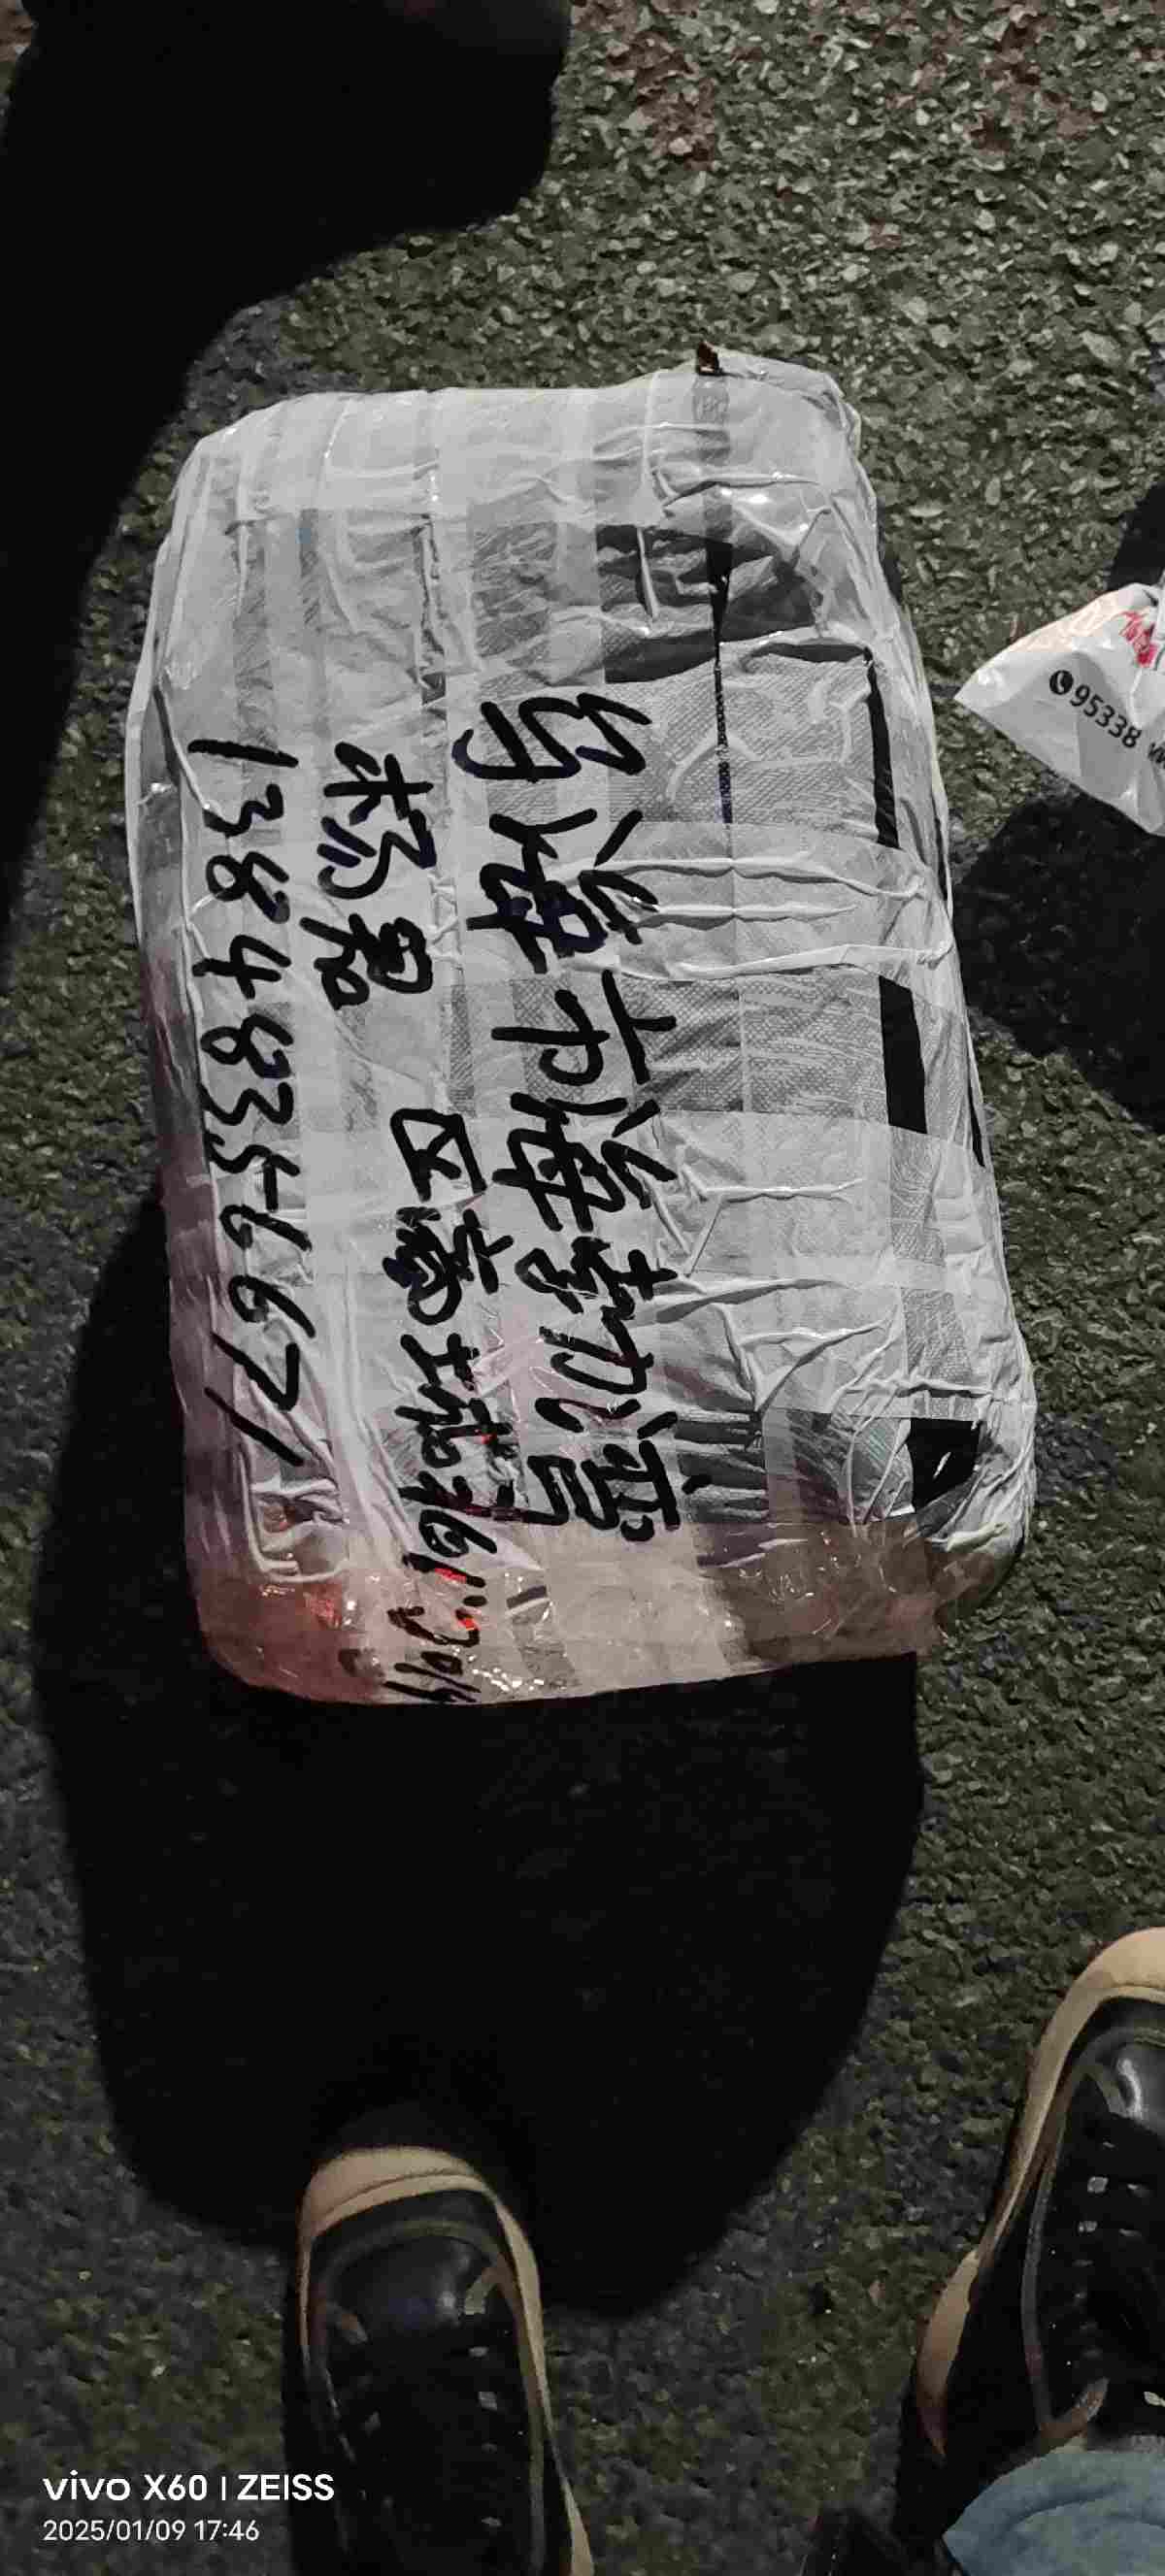 乌海市海勃湾
区
杨君
13848356671
95338
vivo X60 | ZEISS
2025/01/09 17:46